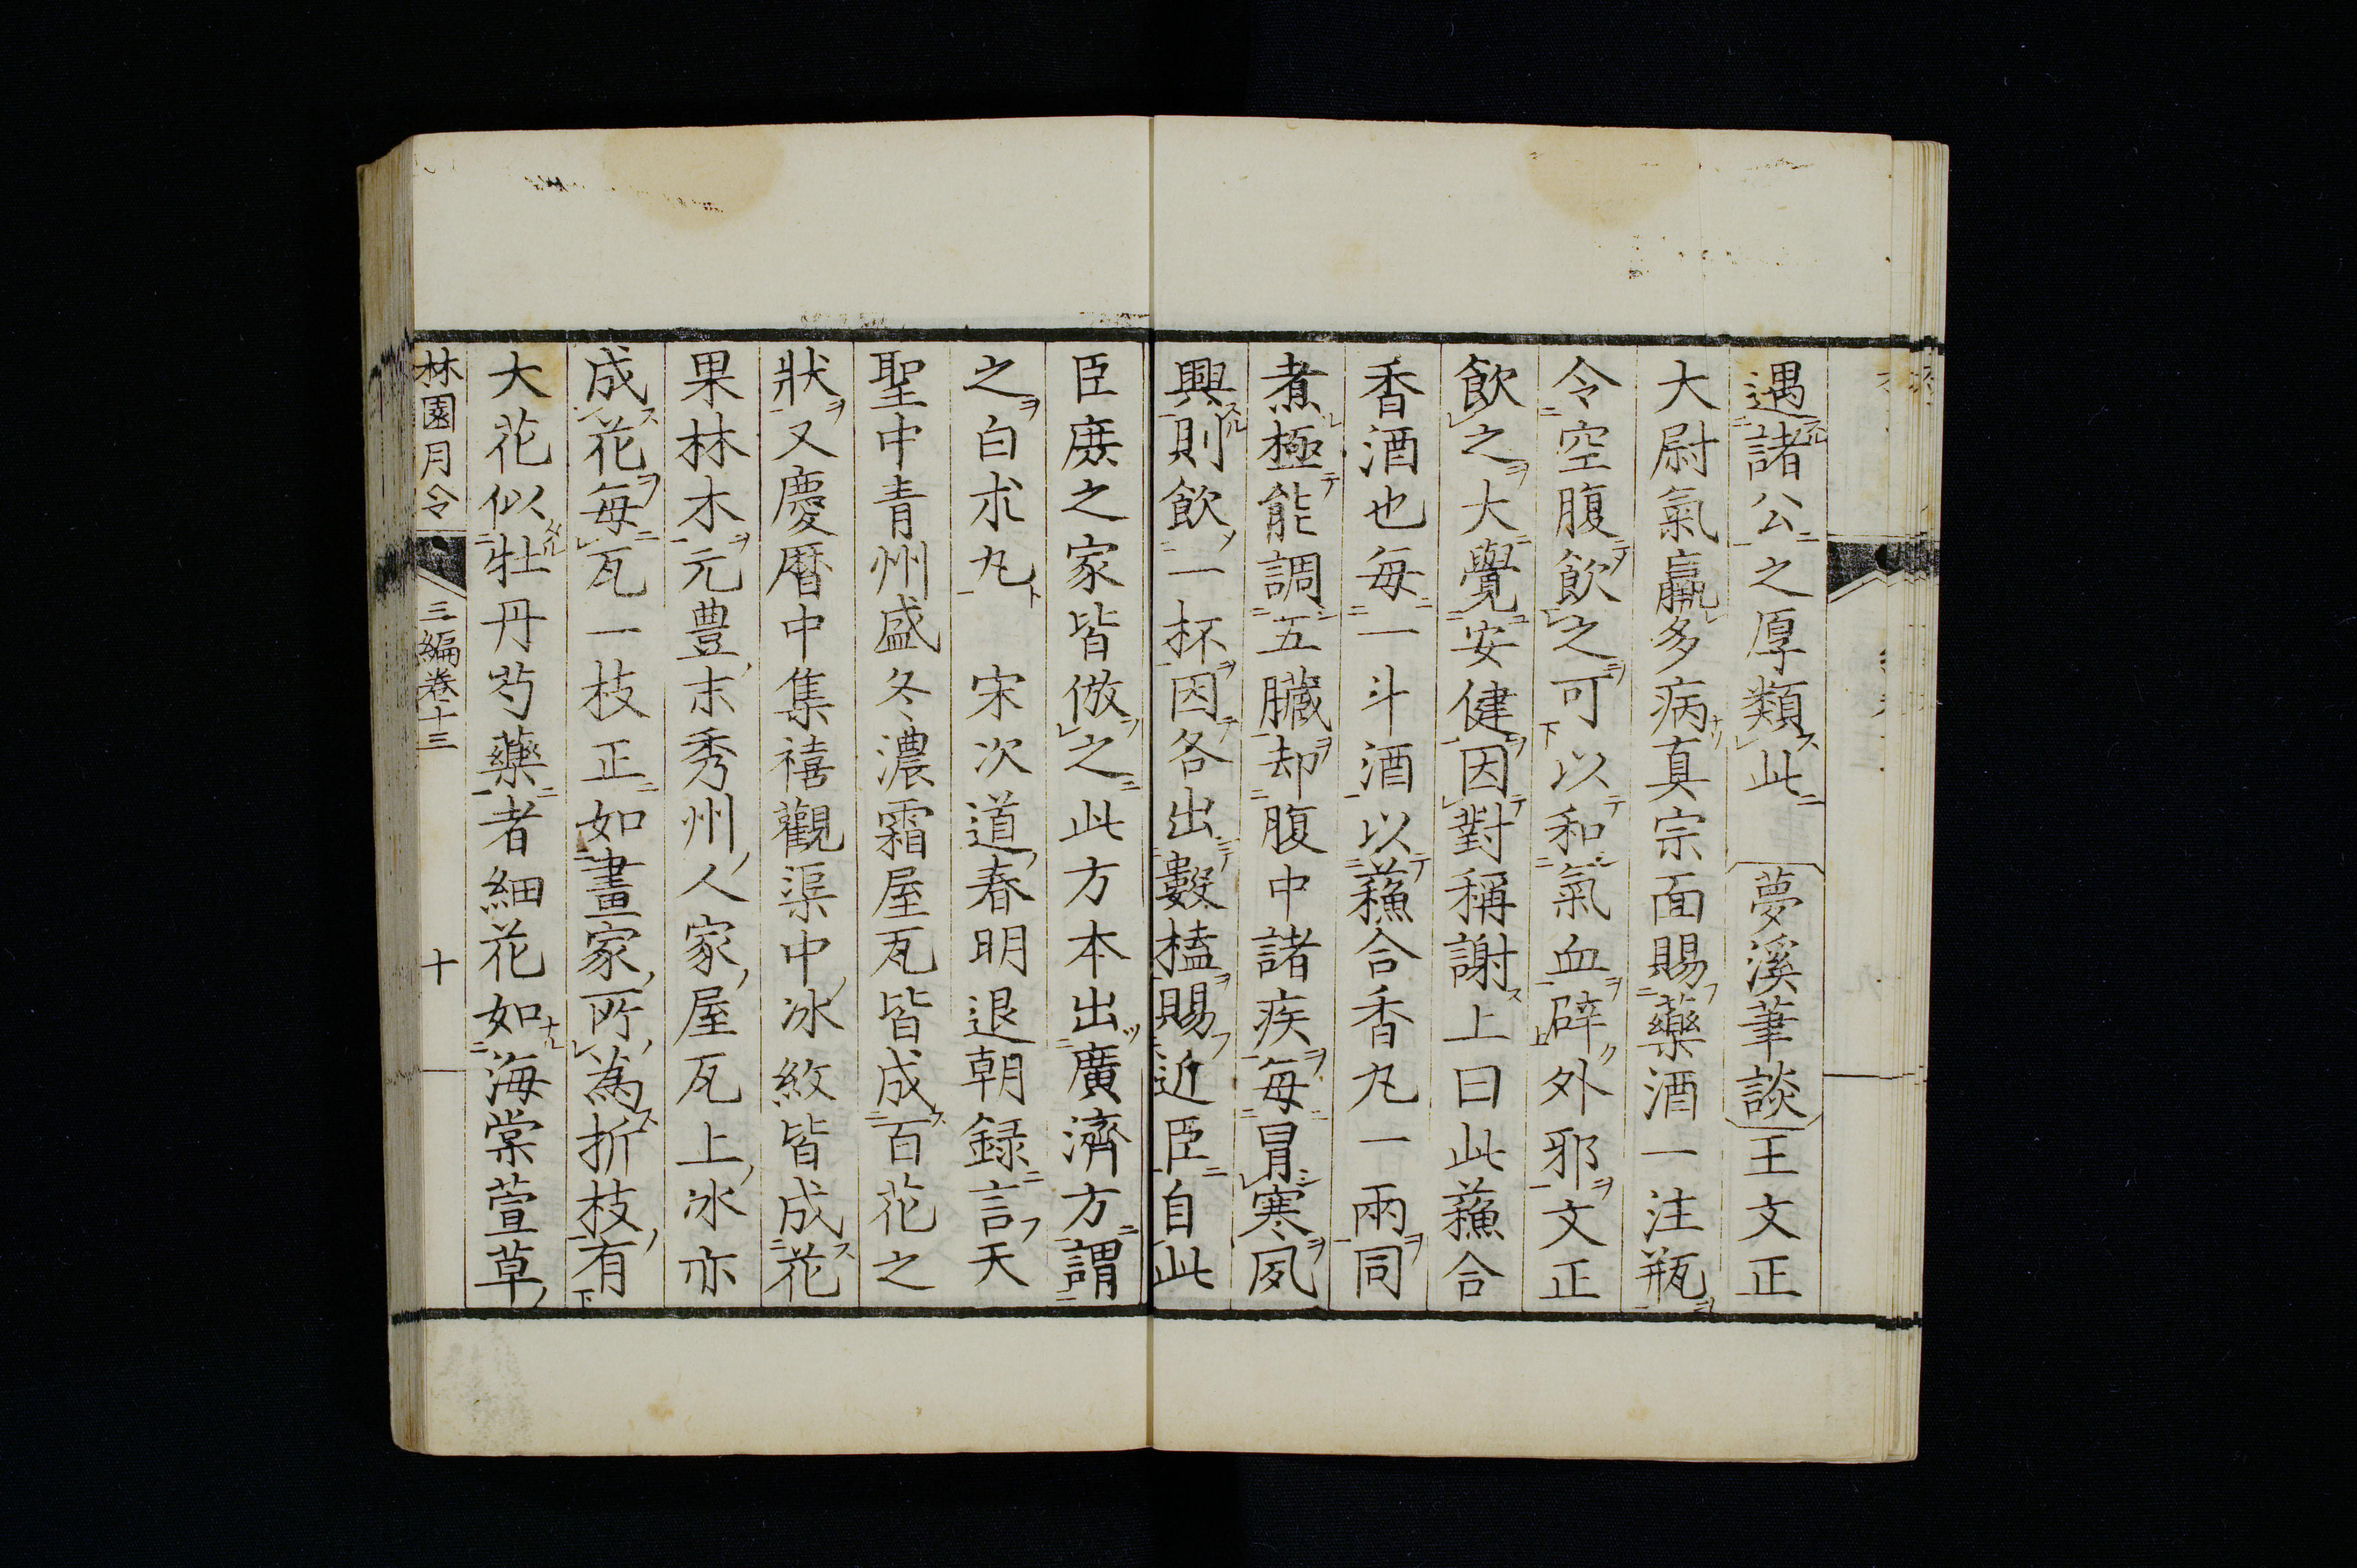 遇諸公之厚類此　夢溪筆談王文正
大尉氣羸多病真宗面賜藥酒一注瓶
令空腹飲之可以和氣血辟外邪文正
飲之大覺安健因對稱謝上曰此蘓合
香酒也毎一斗酒以蘓合香丸一兩同
煮極能調五臓却腹中諸疾毎冒寒夙
興則飲一杯因各出數榼賜近臣自此
臣庶之家皆倣之此方本出廣濟方謂
之白朮丸　宋次道春明退朝録言天
聖中青州盛冬濃霜屋瓦皆成百花之
狀又慶暦中集禧觀渠中冰紋皆成花
果林木元豊末秀州人家屋瓦上冰亦
成花毎瓦一枝正如畫家所為折枝有
大花似牡丹芍藥者細花如海棠萱草
林園月令　三編卷十三　十